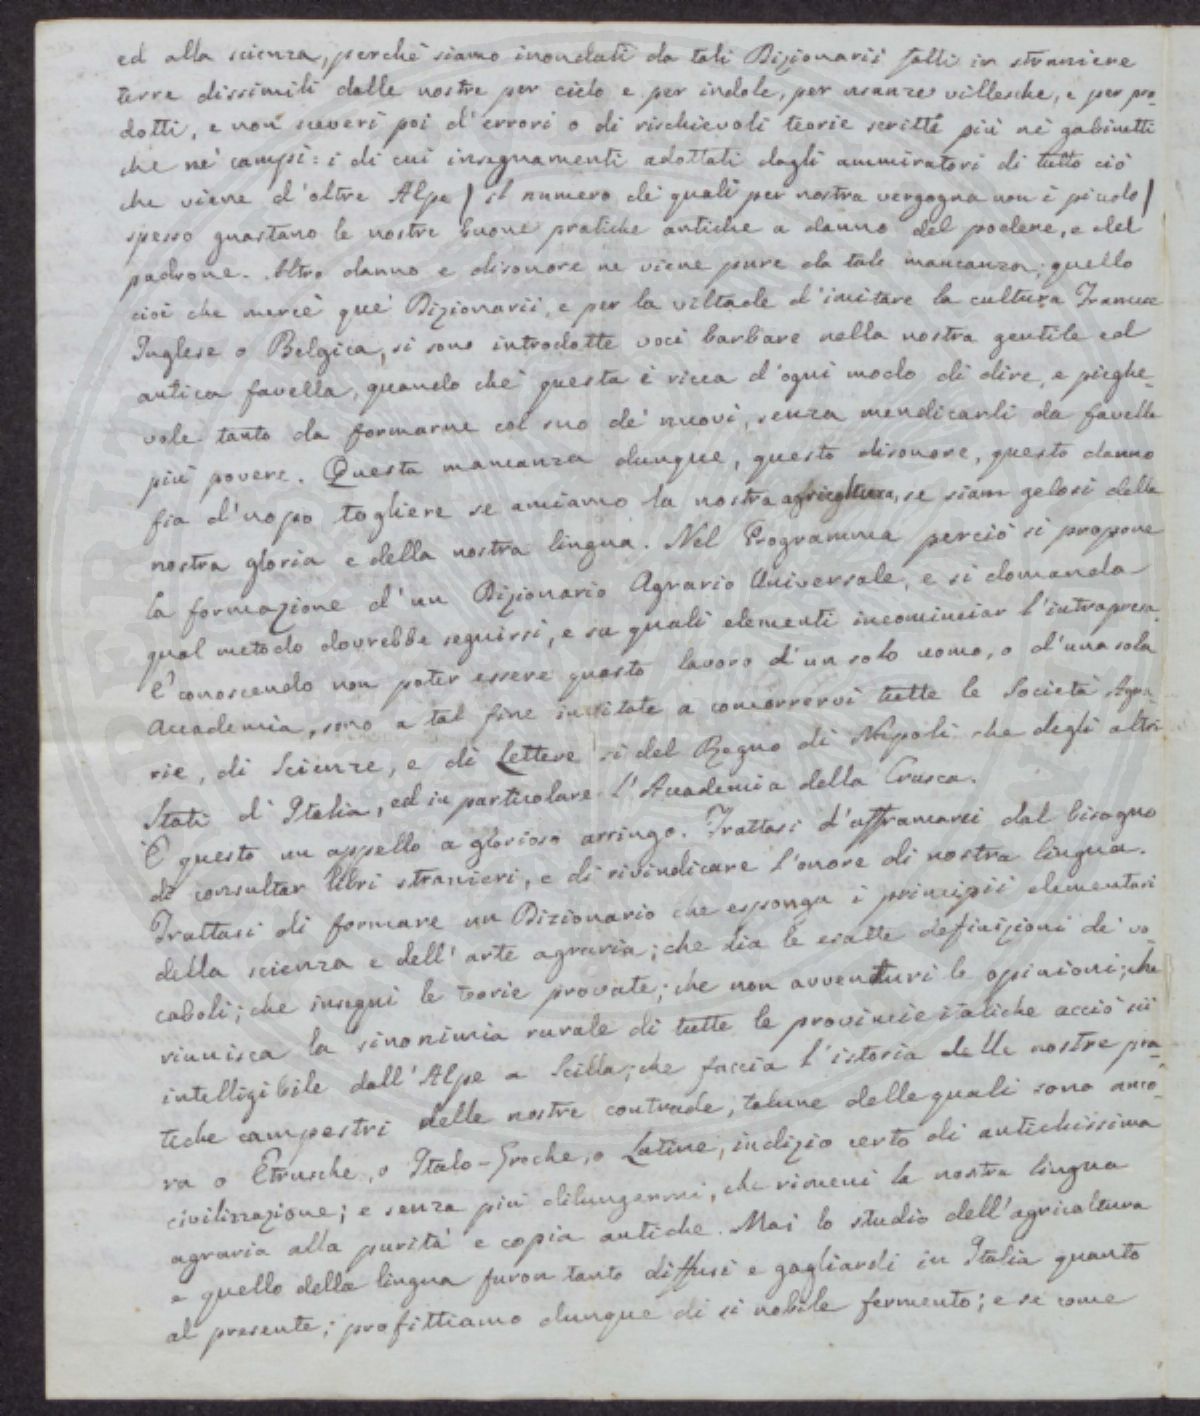 ed alla scienza, perchè siamo inondati da tali Dizionarii fatti in straniere
terre dissimili dalle nostre per cielo e per indole, per usanze villesche, e per pro-
dotti, e non sceveri poi d'errori o di rischievoli teorie scritte più ne' gabinetti
che ne' campi: i di cui insegnamenti adottati dagli ammiratori di tutto ciò
che viene d'oltre Alpe / il numero de' quali per nostra vergogna non è piccolo /
spesso guastano le nostre buone pratiche antiche a danno del podere, e del
padrone. Altro danno e disonore ne viene pure da tale mancanza; quello
cioè che mercè que' Dizionarii, e per la viltade d'imitare la cultura Francese
Inglese o Belgica, si sono introdotte voci barbare nella nostra gentile ed
antica favella, quando che questa è ricca d'ogni modo di dire, e pieghe-
vole tanto da formarne col suo de' nuovi, senza mendicarli da favelle
più povere. Questa mancanza dunque, questo disonore, questo danno
fia d'uopo togliere se amiamo la nostra agricoltura, se siam gelosi della
nostra gloria e della nostra lingua. Nel Programma perciò si propone
la formazione d'un Dizionario Agrario Universale, e si domanda
qual metodo dovrebbe seguirsi, e su quali elementi incominciar l'intrapresa.
E conoscendo non poter essere questo lavoro d'un solo uomo, o d'una sola
Accademia, sono a tal fine invitate a concorrervi tutte le Società Agra-
rie, di Scienze, e di Lettere sì del Regno di Napoli che degli altri
Stati d'Italia, ed in particolare l'Accademia della Crusca.
È questo un appello a glorioso arringo. Trattasi d'affrancarci dal bisogno
di consultar libri stranieri, e di rivindicare l'onore di nostra lingua.
Trattasi di formare un Dizionario che esponga i principii elementari
della scienza e dell'arte agraria; che dia le esatte definizioni de' vo-
caboli; che insegni le teorie provate; che non avventuri le opinioni; che
riunisca la sinonimia rurale di tutte le provincie italiche acciò sii
intelligibile dall'Alpe a Scilla; che faccia l'istoria delle nostre pra-
tiche campestri delle nostre contrade, talune delle quali sono anco-
ra o Etrusche, o Italo-Greche, o Latine, indizio certo di antichissima
civilizzazione; e senza più dilungarmi, che rimeni la nostra lingua
agraria alla purità e copia antiche. Mai lo studio dell'agricoltura
e quello della lingua furon tanto diffusi e gagliardi in Italia quanto
al presente; profittiamo dunque di sì nobile fermento; e se come